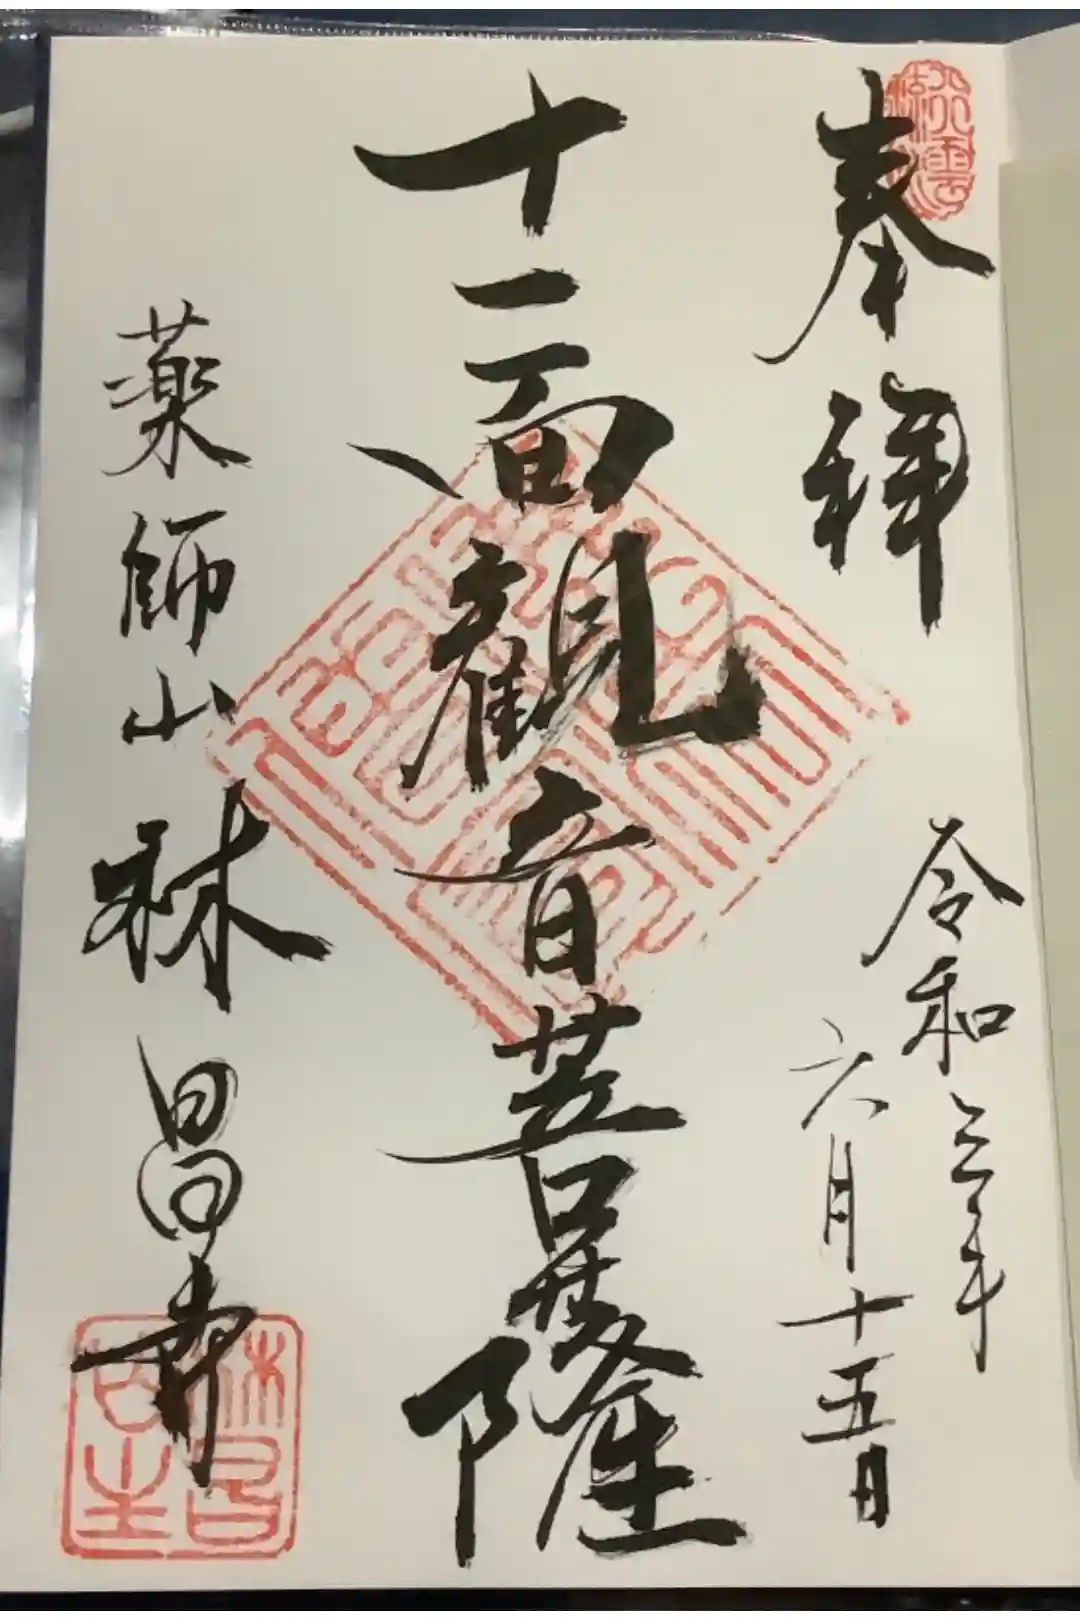 奉拝
令和三年
六月十五日
十一面観音菩薩
薬師山林昌寺